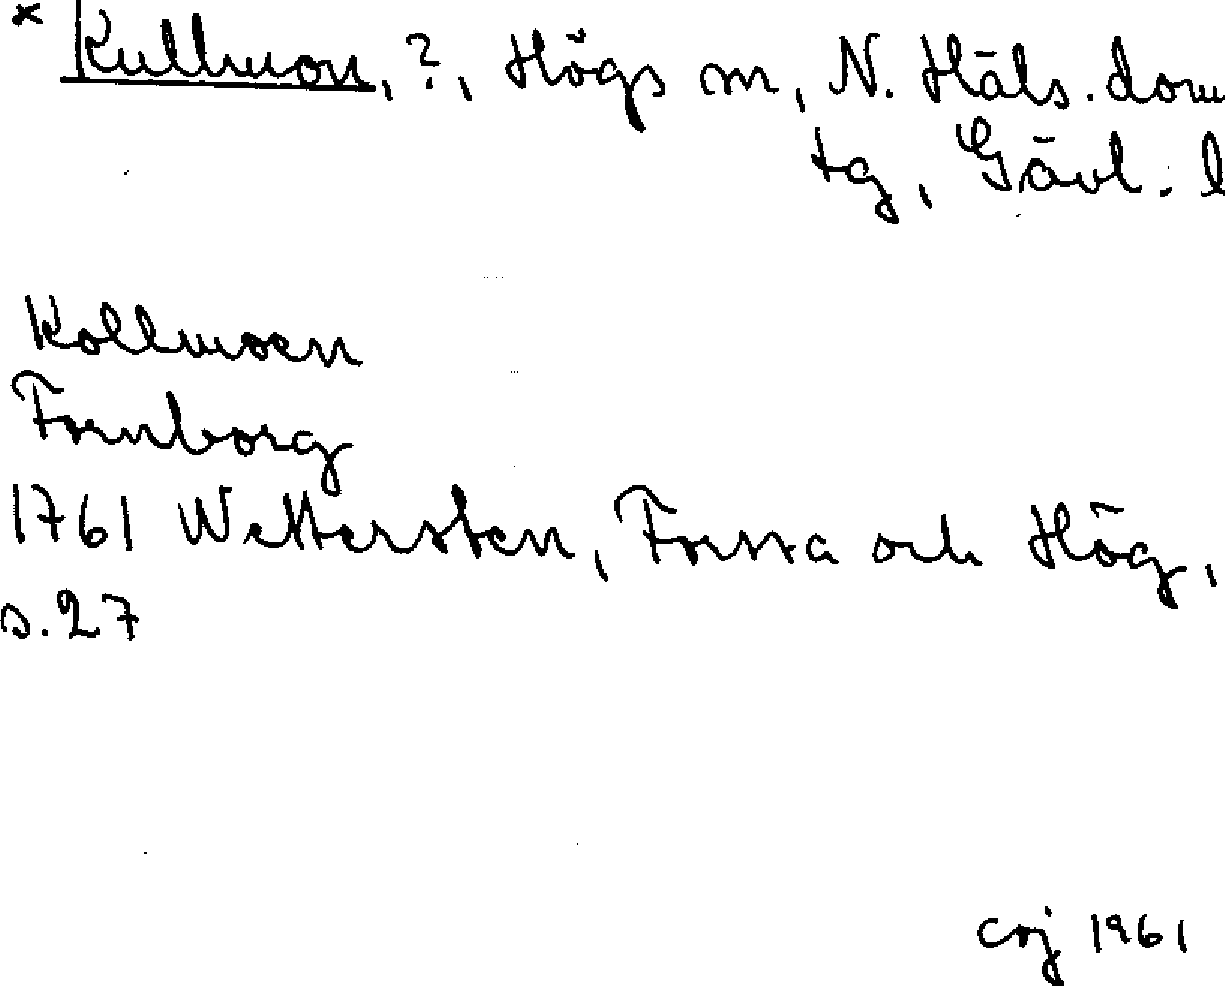 × Kullmon, ?, Högs sn, N. Häls. dom
tg, Gävl. l
Kollmoen
Fornborg
1761 Wettersten, Forssa och Hög,
s. 27
coj 1961